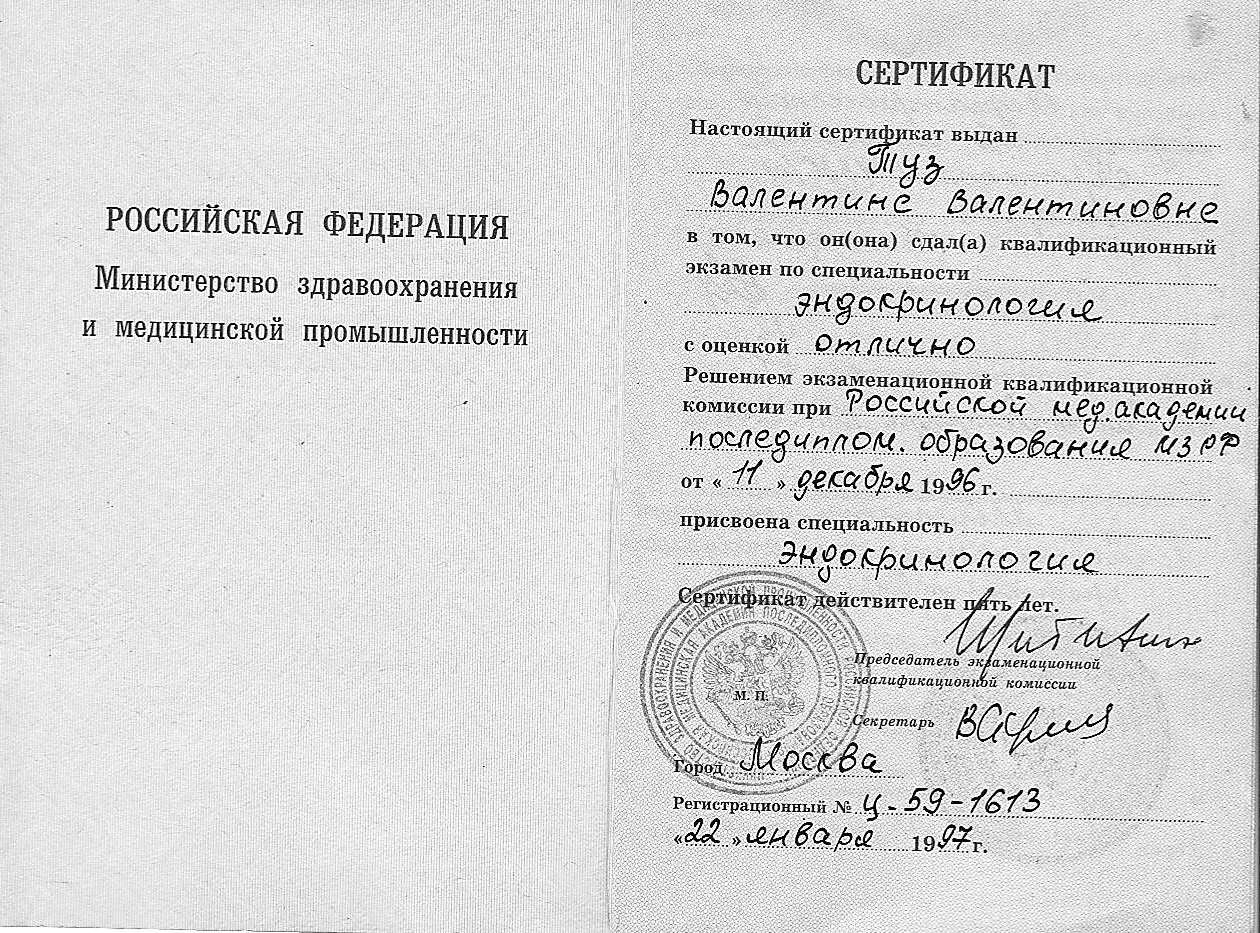 РОССИЙСКАЯ ФЕДЕРАЦИЯ
Министерство здравоохранения
и медицинской промышленности
СЕРТИФИКАТ
Настоящий сертификат выдан
Туз
Валентине Валентиновне
в том, что он(она) сдал(а) квалификационный
экзамен по специальности
эндокринология
с оценкой отлично
Решением экзаменационной квалификационной
комиссии при Российской мед. академии
последиплом. образования МЗ РФ
от « 11 » декабря 1996 г.
присвоена специальность
эндокринология
Сертификат действителен пять лет.
Председатель экзаменационной
квалификационной комиссии
М. П.
Секретарь
Город Москва
Регистрационный № Ц-59-1613
«22» января 1997 г.